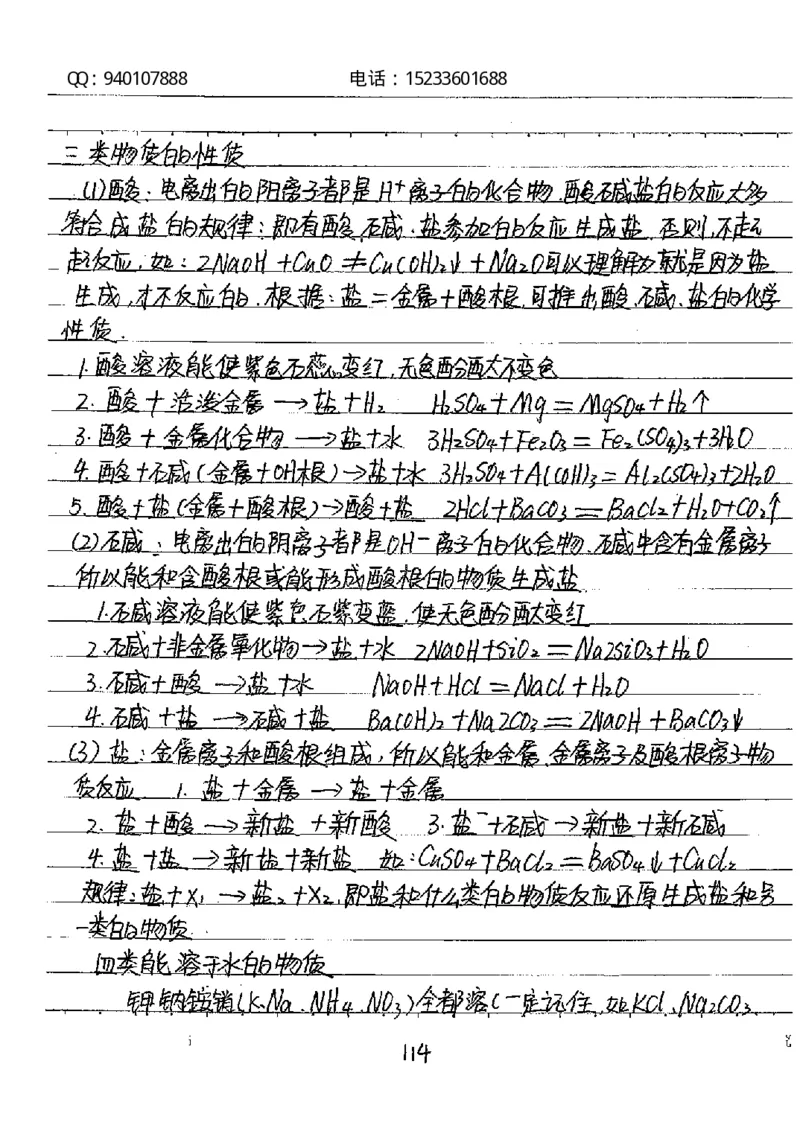 QQ：940107888 电话：15233601688
三类物质的性质
(1)酸：电离出的阳离子都是H⁺离子的化合物.酸碱盐的反应大多
符合成盐的规律：即有酸、碱、盐参加的反应生成盐.否则,不起
起反应.如：2NaOH+CuO≠Cu(OH)₂↓+Na₂O可以理解为就是因为盐
生成,才不反应的.根据：盐=金属+酸根.可推出酸、碱、盐的化学
性质.
1.酸溶液能使紫色石蕊变红,无色酚酞不变色
2.酸+活泼金属→盐+H₂ H₂SO₄+Mg=MgSO₄+H₂↑
3.酸+金属化合物→盐+水 3H₂SO₄+Fe₂O₃=Fe₂(SO₄)₃+3H₂O
4.酸+碱(金属+OH根)→盐+水 3H₂SO₄+Al(OH)₃=Al₂(SO₄)₃+2H₂O
5.酸+盐(金属+酸根)→酸+盐 2HCl+BaCO₃=BaCl₂+H₂O+CO₂↑
(2)碱：电离出的阴离子都是OH-离子的化合物.碱中含有金属离子
所以能和含酸根或能形成酸根的物质生成盐
1.碱溶液能使紫色石紫变蓝,使无色酚酞变红
2.碱+非金属氧化物→盐+水 2NaOH+SiO₂=Na₂SiO₃+H₂O
3.碱+酸→盐+水 NaOH+HCl=NaCl+H₂O
4.碱+盐→碱+盐 Ba(OH)₂+Na₂CO₃=2NaOH+BaCO₃↓
(3)盐：金属离子和酸根组成,所以能和金属、金属离子及酸根离子物
质反应 1.盐+金属→盐+金属
2.盐+酸→新盐+新酸 3.盐+碱→新盐+新碱
4.盐+盐→新盐+新盐 如:CuSO₄+BaCl₂=BaSO₄↓+CuCl₂
规律:盐+X₁→盐₂+X₂,即盐和什么类的物质反应还原生成盐和另
一类的物质
四类能溶于水的物质
钾钠铵硝(K、Na、NH₄、NO₃)全都溶(一定记住,如KCl、Na₂CO₃
114